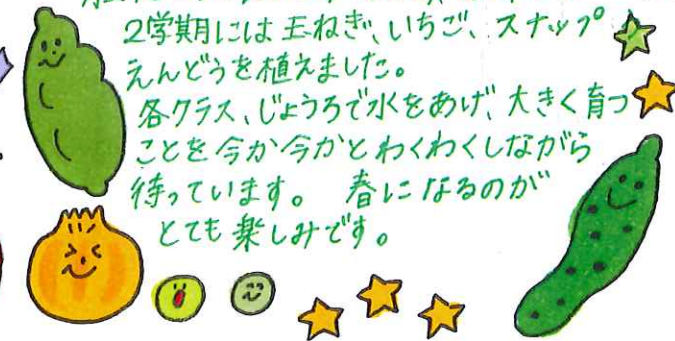 2学期には玉ねぎ、いちご、スナップ
えんどうを植えました。
各クラス、じょうろで水をあげ、大きく育つ
ことを今か今かとわくわくしながら
待っています。 春になるのが
とても楽しみです。